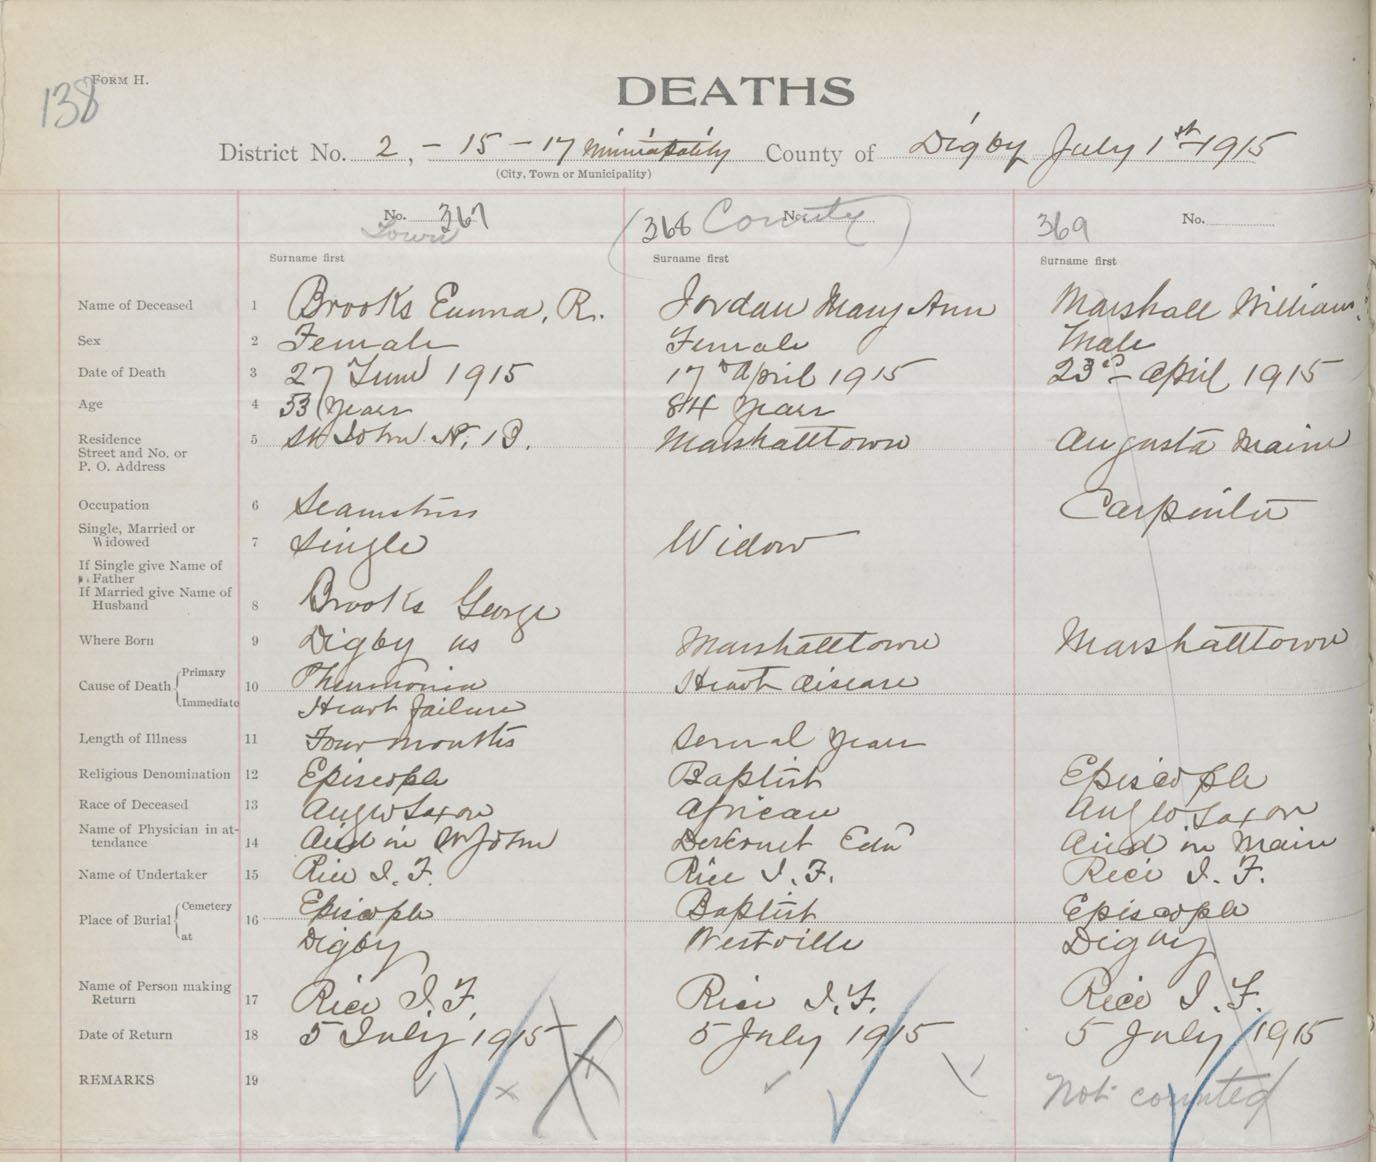 138
FORM H.
DEATHS
District No. 2, - 15 - 17 Municipality County of Digby July 1st 1915
(City, Town or Municipality)
No. 367 368 County No. 369 No.
Town
Surname first Surname first Surname first
Name of Deceased 1 Brooks Emma, R. Jordan Mary Ann Marshall William
Sex 2 Female Female Male
Date of Death 3 27 June 1915 17th April 1915 23rd April 1915
Age 4 53 Years 84 Years
Residence 5 St John N. B. Marshalltown Augusta Maine
Street and No. or
P. O. Address
Occupation 6 Seamstriss Carpenter
Single, Married or
Widowed 7 Single Widow
If Single give Name of
Father
If Married give Name of
Husband 8 Brooks George
Where Born 9 Digby Marshalltown Marshalltown
Cause of Death Primary 10 Pheumonia Heart disease
Immediate Heart failure
Length of Illness 11 Four months Several Years
Religious Denomination 12 Episcople Baptist Episcople
Race of Deceased 13 Anglo Saxon African Anglo Saxon
Name of Physician in at-
tendance 14 Died in St John Edw Died in Main
Name of Undertaker 15 Rice I. F. Rice I. F. Rice I. F.
Place of Burial Cemetery 16 Episcople Baptist Episcople
at Digby Westville Digby
Name of Person making
Return 17 Rice I. F. Rice I. F. Rice I. F.
Date of Return 18 5 July 1915 5 July 1915 5 July 1915
REMARKS 19 Not counted